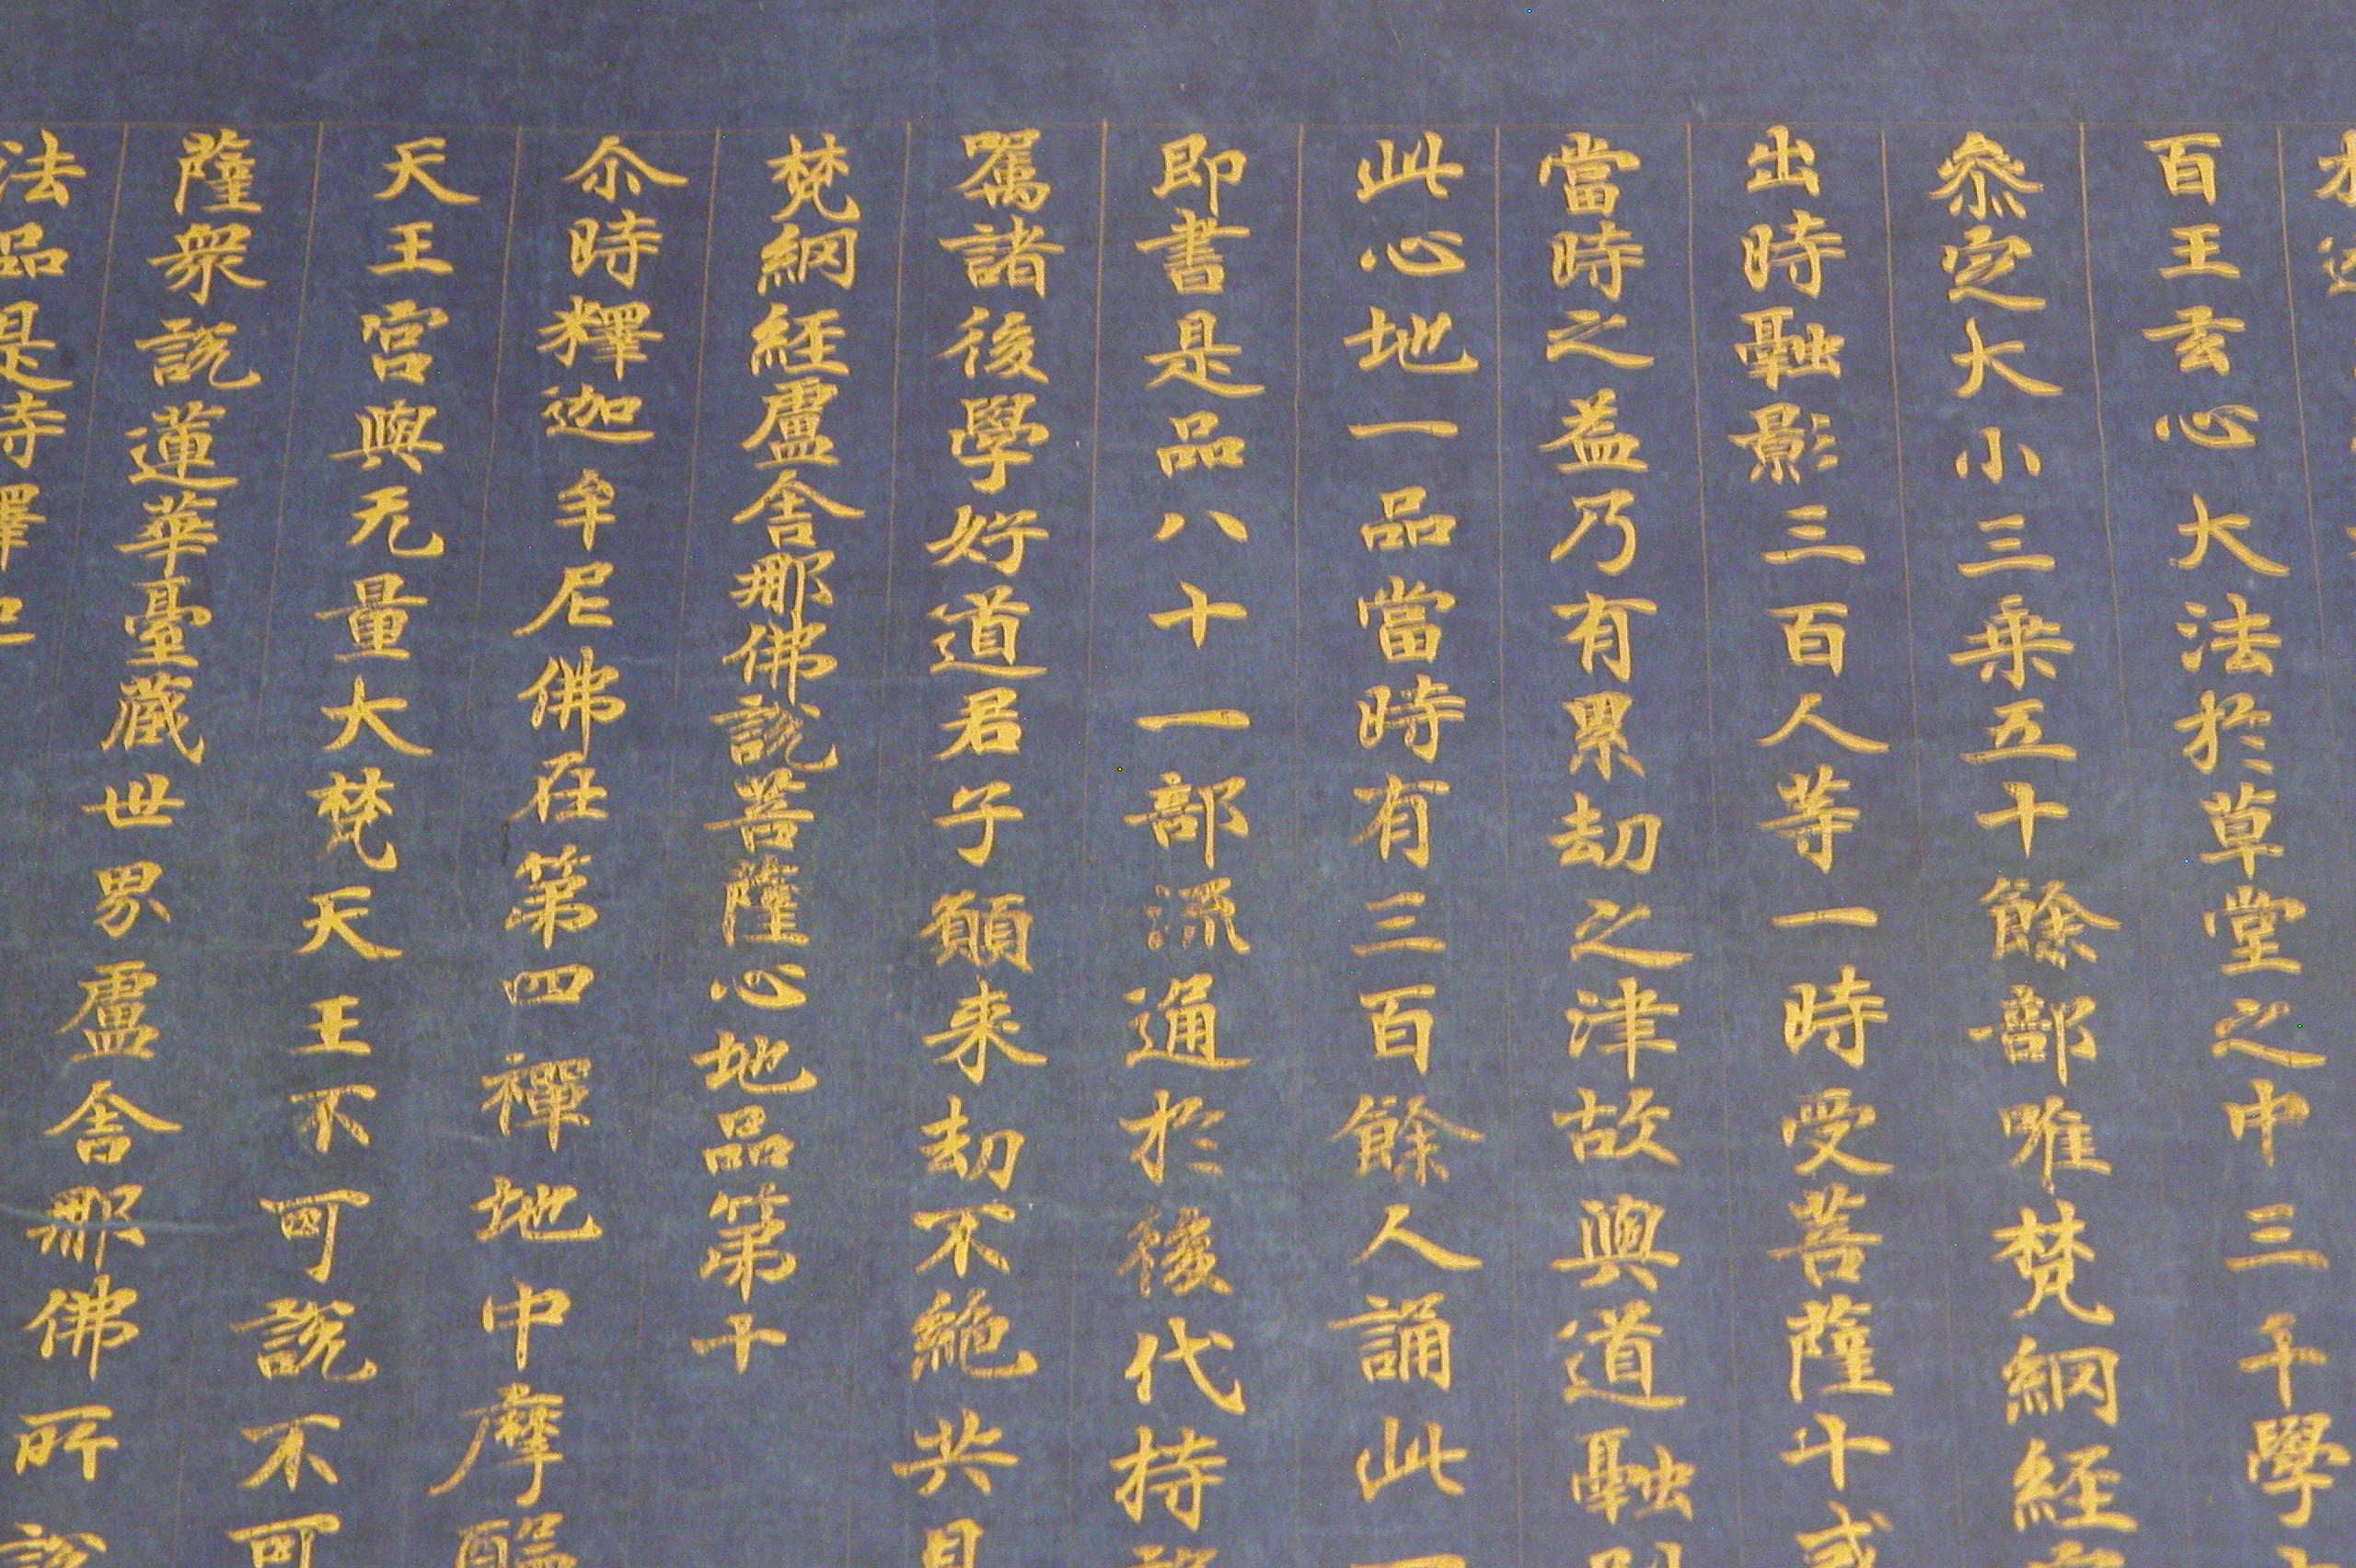 百王玄心大法於草堂之中三千學
叅定大小三乗五十餘部唯梵網経
出時融影三百人等一時受菩薩十戒
當時之益乃有累劫之津故與道融別
此心地一品當時有三百餘人誦此一
即書是品八十一部流通於後代持
囑諸後學好道君子願来劫不絶共見
梵網経盧舎那佛說菩薩心地品第十
尒時釋迦牟尼佛在第四禪地中摩醯
天王宮與无量大梵天王不可說不可
薩衆說蓮華臺蔵世界盧舎那佛所說
法品是時釋迦